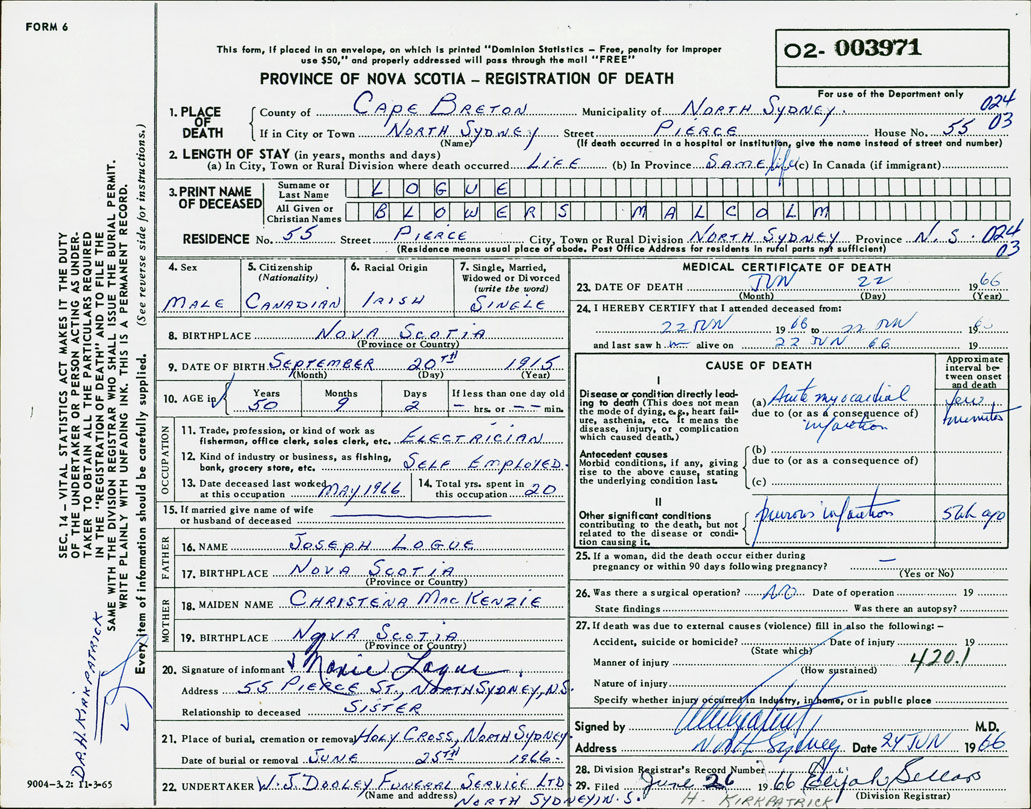 FORM 6
This form, if placed in an envelope, on which is printed "Dominion Statistics – Free, penalty for improper
use $50," and properly addressed will pass through the mail "FREE"
O2- 003971
PROVINCE OF NOVA SCOTIA – REGISTRATION OF DEATH
For use of the Department only
1. PLACE OF DEATH
County of CAPE BRETON Municipality of NORTH SYDNEY. 024
If in City or Town NORTH SYDNEY Street PIERCE House No. 55 03
(Name) (If death occurred in a hospital or institution, give the name instead of street and number)
2. LENGTH OF STAY (in years, months and days)
(a) In City, Town or Rural Division where death occurred LIFE (b) In Province SAME life (c) In Canada (if immigrant)
3. PRINT NAME OF DECEASED
Surname or Last Name LOGUE
All Given or Christian Names BLOWERS MALCOLM
RESIDENCE No. 55 Street PIERCE City, Town or Rural Division NORTH SYDNEY Province N.S. 024
(Residence means usual place of abode. Post Office Address for residents in rural parts not sufficient) 03
4. Sex
MALE
5. Citizenship
(Nationality)
CANADIAN
6. Racial Origin
IRISH
7. Single, Married,
Widowed or Divorced
(write the word)
SINGLE
8. BIRTHPLACE NOVA SCOTIA
(Province or Country)
9. DATE OF BIRTH SEPTEMBER 20TH 1915
(Month) (Day) (Year)
10. AGE in Years 50 Months 9 Days 2 If less than one day old – hrs. or – – min.
OCCUPATION
11. Trade, profession, or kind of work as
fisherman, office clerk, sales clerk, etc. ELECTRICIAN
12. Kind of industry or business, as fishing,
bank, grocery store, etc. SELF EMPLOYED.
13. Date deceased last worked
at this occupation MAY 1966
14. Total yrs. spent in
this occupation 20
15. If married give name of wife
or husband of deceased
FATHER
16. NAME JOSEPH LOGUE
17. BIRTHPLACE NOVA SCOTIA
(Province or Country)
MOTHER
18. MAIDEN NAME CHRISTENA MACKENZIE
19. BIRTHPLACE NOVA SCOTIA
(Province or Country)
20. Signature of informant Marie Logue
Address 55 PIERCE ST., NORTH SYDNEY, N.S.
Relationship to deceased SISTER
21. Place of burial, cremation or removal HOLY CROSS, NORTH SYDNEY
Date of burial or removal JUNE 25TH 1966.
22. UNDERTAKER W. J. DOOLEY FUNERAL SERVICE LTD
(Name and address) NORTH SYDNEY N.S.
MEDICAL CERTIFICATE OF DEATH
23. DATE OF DEATH JUN 22 1966
(Month) (Day) (Year)
24. I HEREBY CERTIFY that I attended deceased from:
22 JUN 1966 to 22 JUN 19
and last saw h alive on 22 JUN 66 19
CAUSE OF DEATH
Approximate
interval be-
tween onset
and death
I
Disease or condition directly lead-
ing to death (This does not mean
the mode of dying, e.g., heart fail-
ure, asthenia, etc. It means the
disease, injury, or complication
which caused death.)
(a) Acute myocardial
due to (or as a consequence of)
infarction
few
minutes
Antecedent causes
Morbid conditions, if any, giving
rise to the above cause, stating
the underlying condition last.
(b)
due to (or as a consequence of)
(c)
II
Other significant conditions
contributing to the death, but not
related to the disease or condi-
tion causing it.
infarction
ago
25. If a woman, did the death occur either during
pregnancy or within 90 days following pregnancy? –
(Yes or No)
26. Was there a surgical operation? NO Date of operation 19
State findings Was there an autopsy?
27. If death was due to external causes (violence) fill in also the following:–
Accident, suicide or homicide? Date of injury 19
(State which)
Manner of injury 420.1
(How sustained)
Nature of injury
Specify whether injury occurred in industry, in home, or in public place
Signed by M.D.
Address North Sydney Date 24 JUN 1966
28. Division Registrar's Record Number
29. Filed June 26 1966 Elijah Sellars
(Division Registrar)
H. KIRKPATRICK
SEC. 14 – VITAL STATISTICS ACT MAKES IT THE DUTY
OF THE UNDERTAKER OR PERSON ACTING AS UNDER-
TAKER TO OBTAIN ALL THE PARTICULARS REQUIRED
IN THE "REGISTRATION OF DEATH" AND TO FILE THE
SAME WITH THE DIVISION REGISTRAR WHO SHALL ISSUE THE BURIAL PERMIT.
WRITE PLAINLY WITH UNFADING INK. THIS IS A PERMANENT RECORD.
Every item of information should be carefully supplied. (See reverse side for instructions.)
DR. H. KIRKPATRICK
9004-3.2: 11-3-65